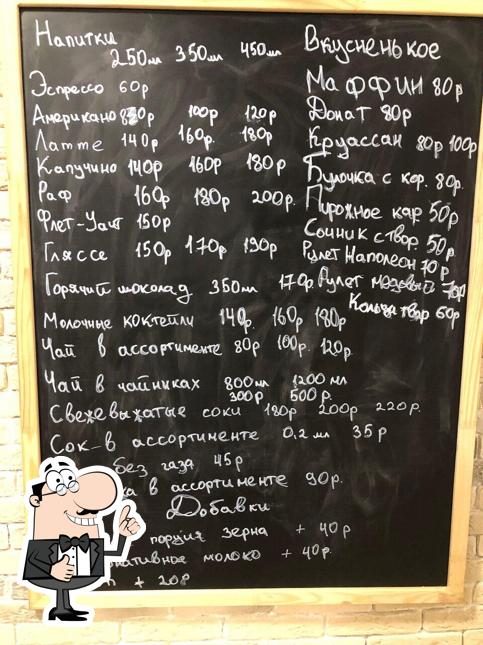 Напитки
250мл 350мл 450мл
Эспрессо 60р
Американо 80р 100р 120р
Латте 140р 160р. 180р
Капучино 140р 160р 180р
Раф 160р 180р 200р.
Флет-Уайт 150р
Гляссе 150р 170р 190р
Горячий шоколад 350мл 170р
Молочные коктейли 140р. 160р 180р
Чай в ассортименте 80р 100р. 120р
Чай в чайниках 800мл 1200мл
300р 500р.
Свежевыжатые соки 180р 200р 220р.
Сок в ассортименте 0,2мл 35р
без газа 45р
в ассортименте 90р.
Добавки
порция зерна + 40р
молоко + 40р.
+ 20р
Вкусненькое
Маффин 80р
Донат 80р
Круассан 80р 100р
Булочка с кор. 80р.
Пирожное кар 50р
Сочник с твор. 50р.
Рулет Наполеон 70р
Рулет медовый 70р
Кольцо твор 60р